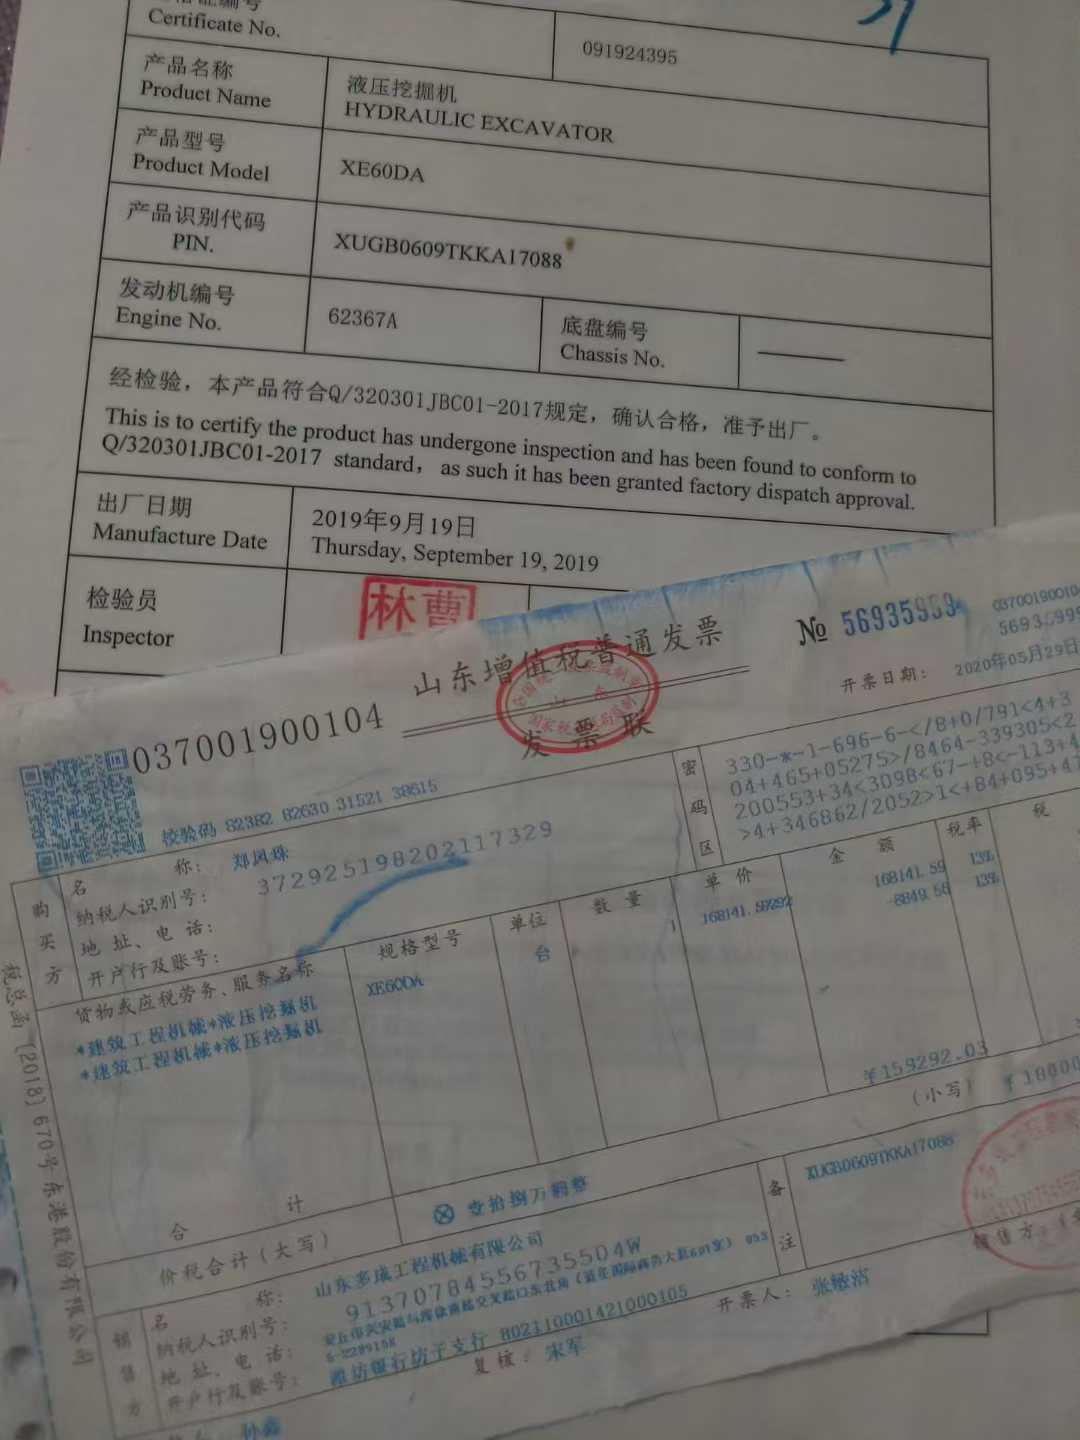 Certificate No.
091924395
产品名称
Product Name
液压挖掘机
HYDRAULIC EXCAVATOR
产品型号
Product Model
XE60DA
产品识别代码
PIN.
XUGB0609TKKA17088
发动机编号
Engine No.
62367A
底盘编号
Chassis No.
经检验，本产品符合Q/320301JBC01-2017规定，确认合格，准予出厂。
This is to certify the product has undergone inspection and has been found to conform to
Q/320301JBC01-2017 standard， as such it has been granted factory dispatch approval.
出厂日期
Manufacture Date
2019年9月19日
Thursday, September 19, 2019
检验员
Inspector
林曹
037001900104
山东增值税普通发票
发票联
№ 569359
03700190010
开票日期： 2020年05月29日
校验码 82382 82630 31521 38615
购买方
名 称： 郑凤珠
纳税人识别号： 372925198202117329
地 址、电 话：
开户行及账号：
密码区
330-*-1-696-6-</8+0/791<4+3
04+465+05275>/8464-339305<2
200553+34<3098<67-+8<-113+4
>4+346862/2052>1<+84+095+47
货物或应税劳务、服务名称
规格型号
单位
数 量
单 价
金 额
税率
税
*建筑工程机械*液压挖掘机
XE60DA
台
1
168141.59292
168141.59
13%
*建筑工程机械*液压挖掘机
-8849.56
13%
合 计
￥159292.03
价税合计（大写）
ⓧ 壹拾捌万圆整
（小写）
￥18000
销售方
名 称： 山东多成工程机械有限公司
纳税人识别号： 91370784556735504W
地 址、电 话：
开户行及账号： 潍坊银行坊子支行 802110001421000105
备注
XUGB0609TKKA17088
复核： 宋军
开票人： 张敏洁
销售方：
孙鑫
税总函〔2018〕670号东港股份有限公司